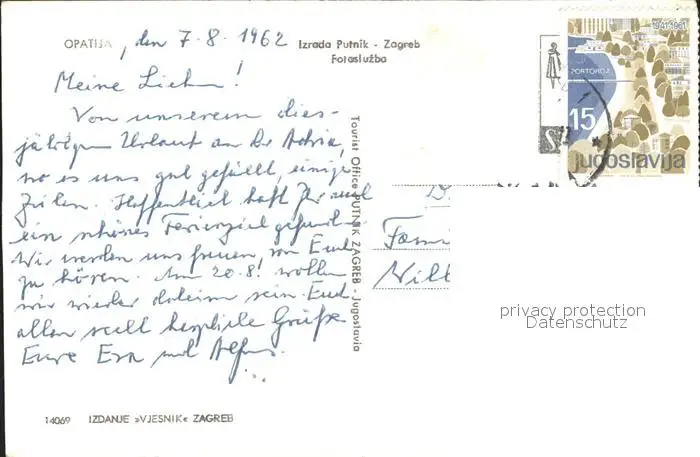 OPATIJA, den 7.8.1962
Izrada Putnik - Zagreb
Fotaslužba
Meine Lieben!
Von unserem dies-
jährigen Urlaub an der Adria,
wo es uns gut gefällt, einige
Zeilen. Hoffentlich habt Ihr auch
ein schönes Ferienziel gefunden.
Wir werden uns freuen, von Euch
zu hören. Am 20.8. wollen
wir wieder daheim sein. Euch
allen recht herzliche Grüße
Eure Eva und
14069 IZDANJE »VJESNIK« ZAGREB
Tourist Office PUTNIK ZAGREB - Jugoslavia
1941-1961
PORTOROŽ
15
jugoslavija
Fam
privacy protection
Datenschutz